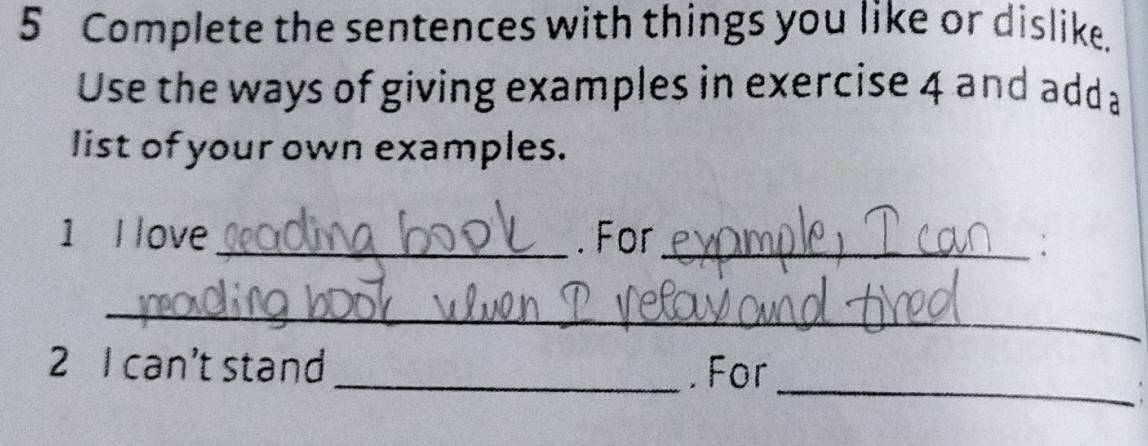 5 Complete the sentences with things you like or dislike.
Use the ways of giving examples in exercise 4 and add a
list of your own examples.
1 I love reading book . For example, I can :
reading book when I relax and tired
2 I can't stand . For :